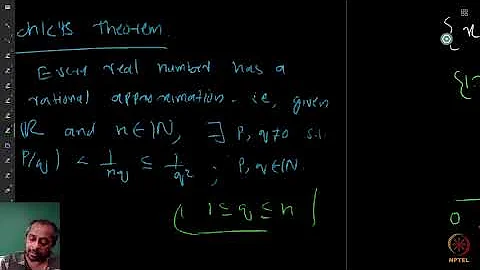 chlets Theorem.
Every real number has a
rational approximation. ie, given
ℝ and n∈ℕ, ∃ p, q≠0 s.t.
p/q) < 1/nq ≤ 1/q² ; p, q∈ℕ.
( 1 ≤ q ≤ n )
{ x
{1-
0
NPTEL